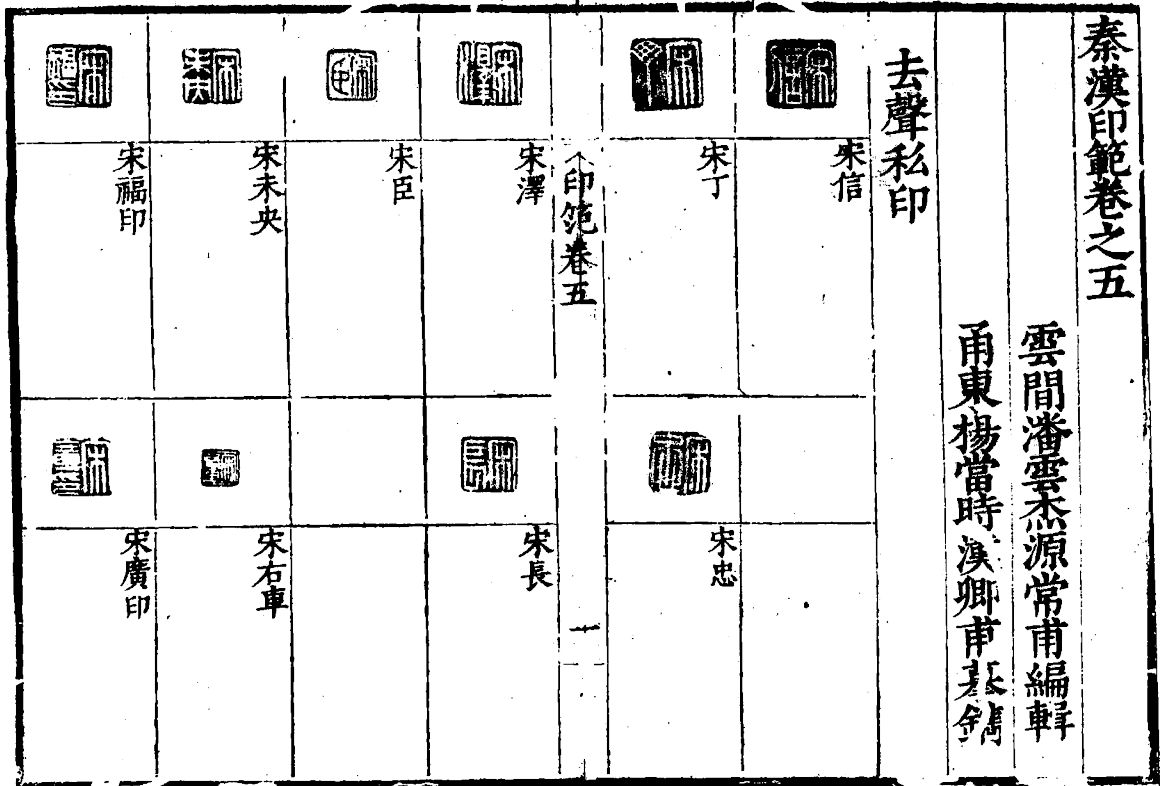 秦漢印範卷之五
雲間潘雲杰源常甫編輯
甬東楊當時漢卿甫摹鐫
去聲私印
宋信
宋丁
宋忠
印範卷五
一
宋澤
宋長
宋臣
宋未央
宋右車
宋福印
宋廣印